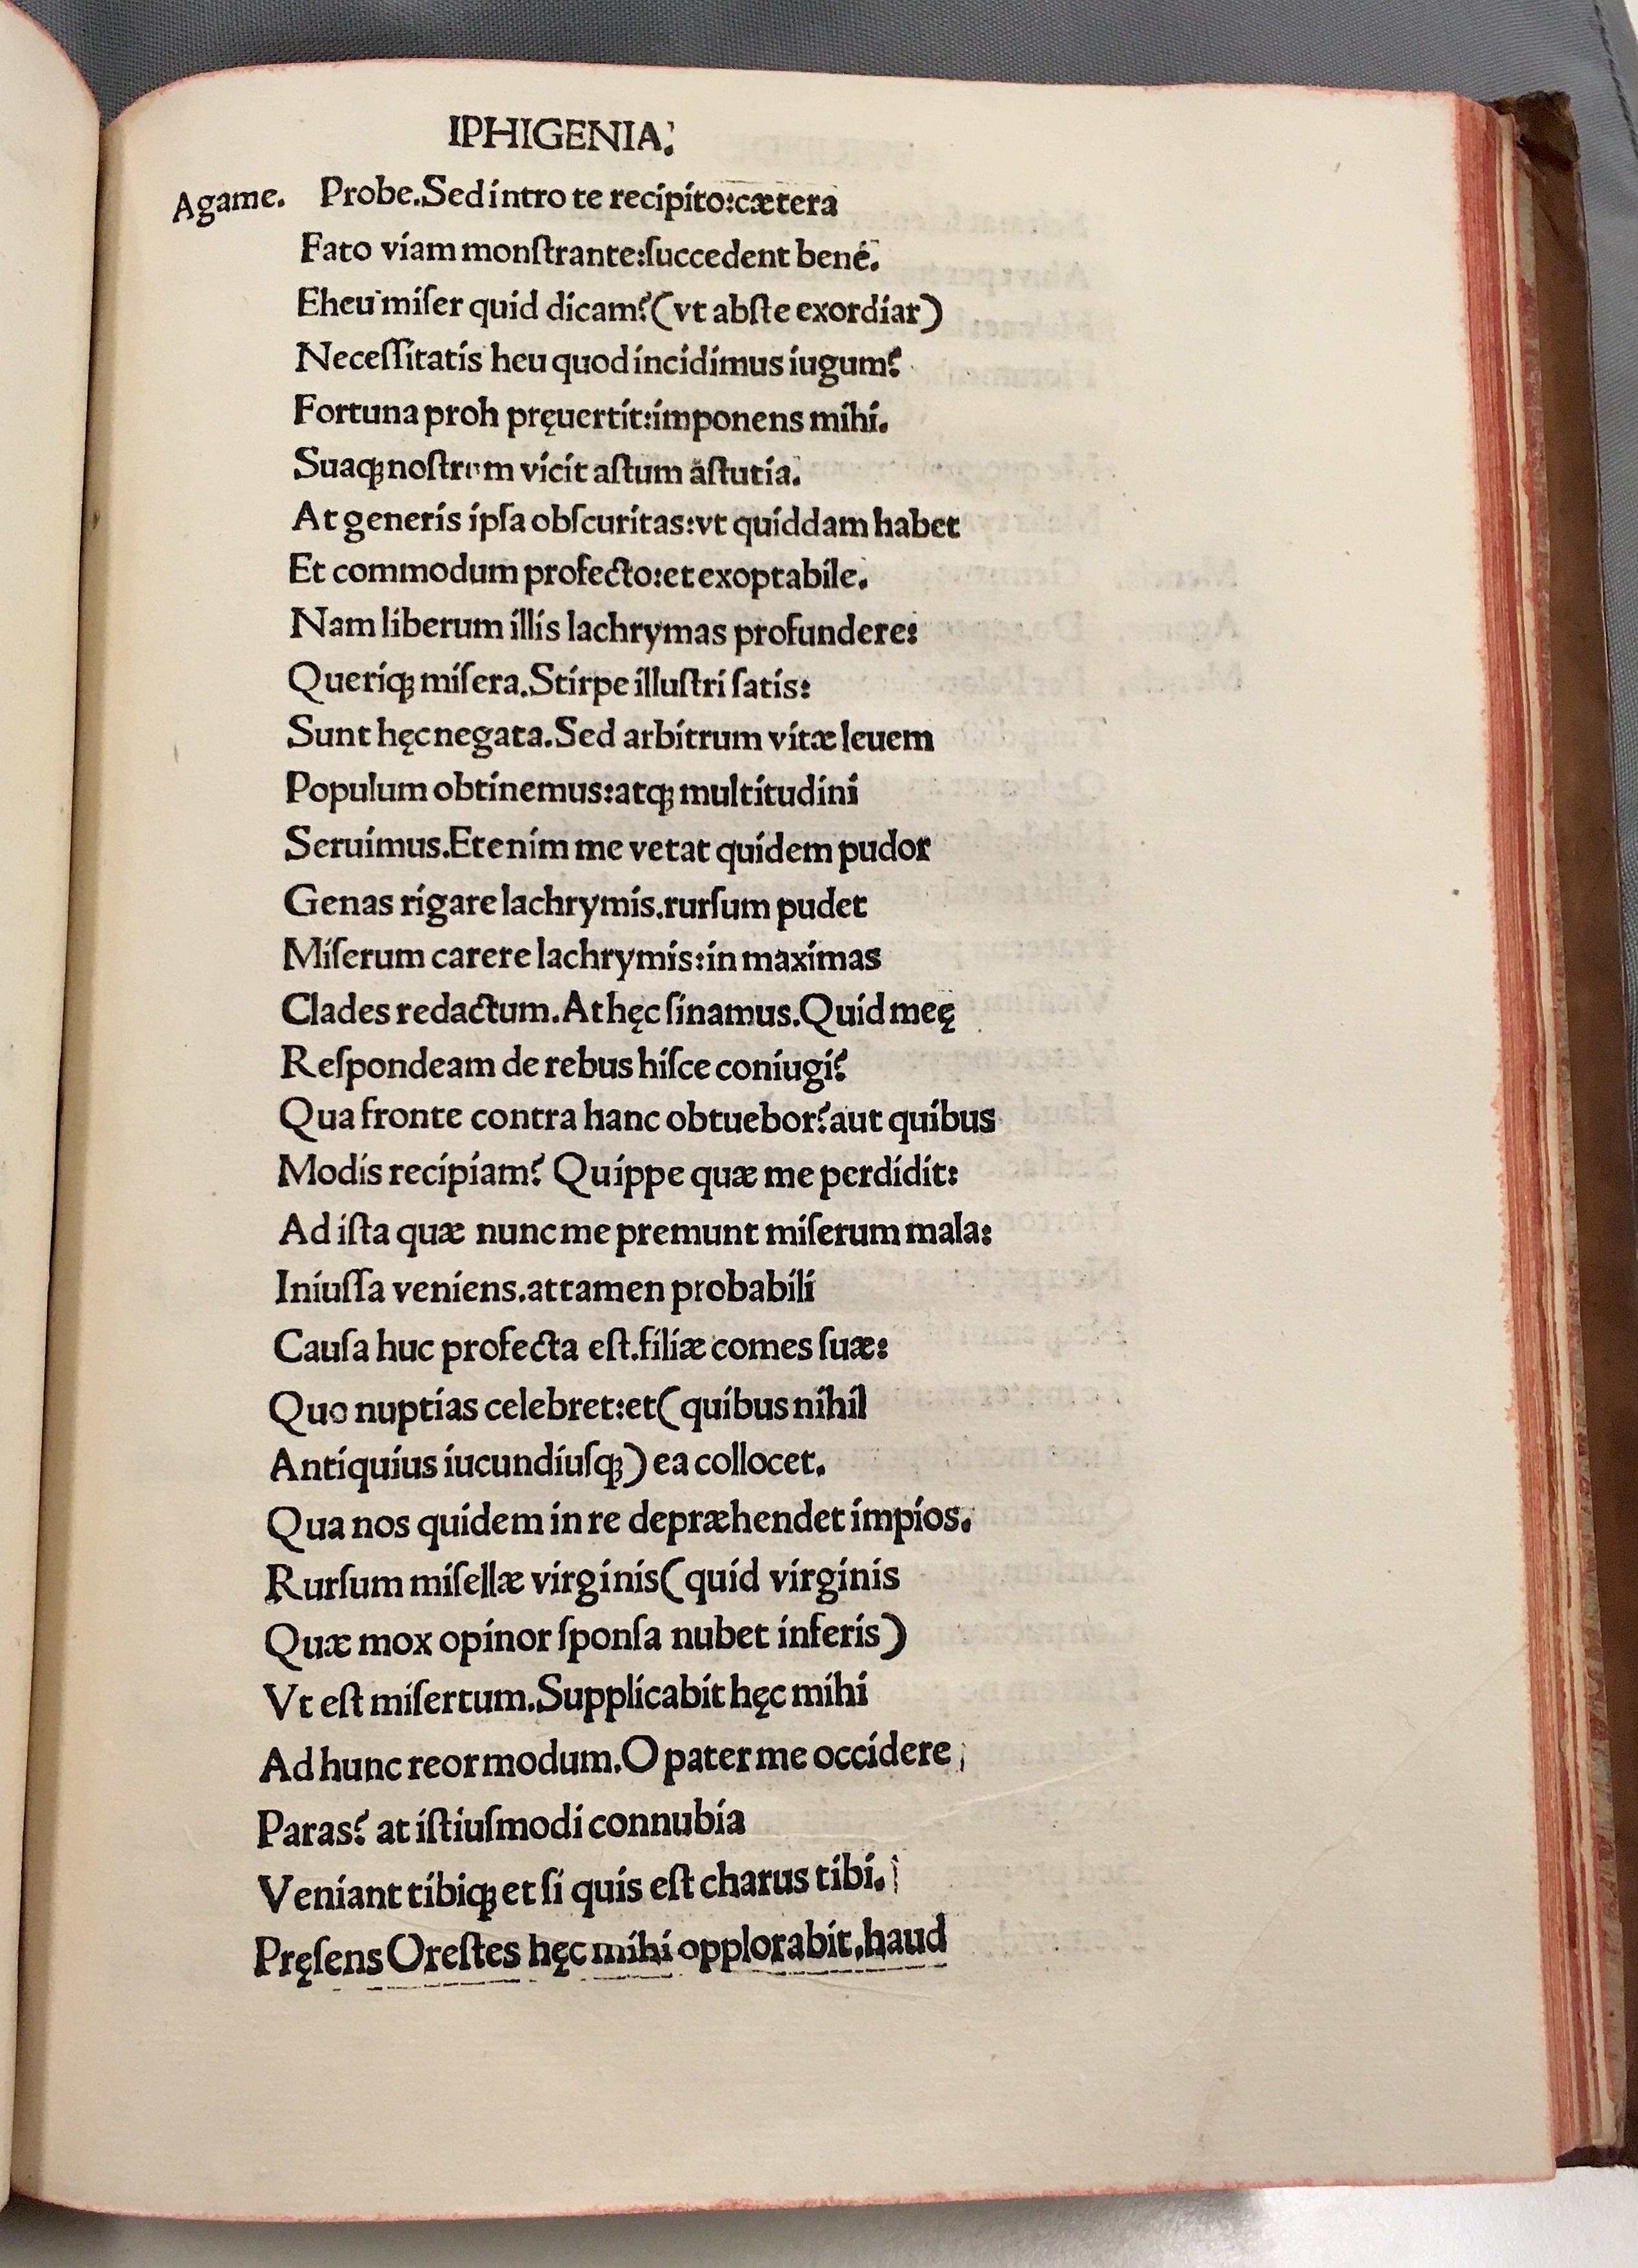 IPHIGENIA.
Agame. Probe.Sed intro te recipito:cætera
Fato viam monſtrante:ſuccedent bené.
Eheu miſer quid dicam?(vt abſte exordiar)
Neceſſitatis heu quod incidimus iugum?
Fortuna proh pręuertit:imponens mihi.
Suaqꝫ noſtrum vicit aſtum aſtutia.
At generis ipſa obſcuritas:vt quiddam habet
Et commodum profecto:et exoptabile.
Nam liberum illis lachrymas profundere:
Queriqꝫ miſera.Stirpe illuſtri ſatis:
Sunt hęc negata.Sed arbitrum vitæ leuem
Populum obtinemus:atqꝫ multitudini
Seruimus.Etenim me vetat quidem pudor
Genas rigare lachrymis.rurſum pudet
Miſerum carere lachrymis:in maximas
Clades redactum.At hęc ſinamus.Quid meę
Reſpondeam de rebus hiſce coniugi?
Qua fronte contra hanc obtuebor?aut quibus
Modis recipiam? Quippe quæ me perdidit:
Ad iſta quæ nunc me premunt miſerum mala:
Iniuſſa veniens.attamen probabili
Cauſa huc profecta eſt.filiæ comes ſuæ:
Quo nuptias celebret:et(quibus nihil
Antiquius iucundiuſqꝫ)ea collocet.
Qua nos quidem in re depræhendet impios.
Rurſum miſellæ virginis(quid virginis
Quæ mox opinor ſponſa nubet inferis)
Vt eſt miſertum.Supplicabit hęc mihi
Ad hunc reor modum.O pater me occidere
Paras? at iſtiuſmodi connubia
Veniant tibiqꝫ et ſi quis eſt charus tibi.
Pręſens Oreſtes hęc mihi opplorabit.haud